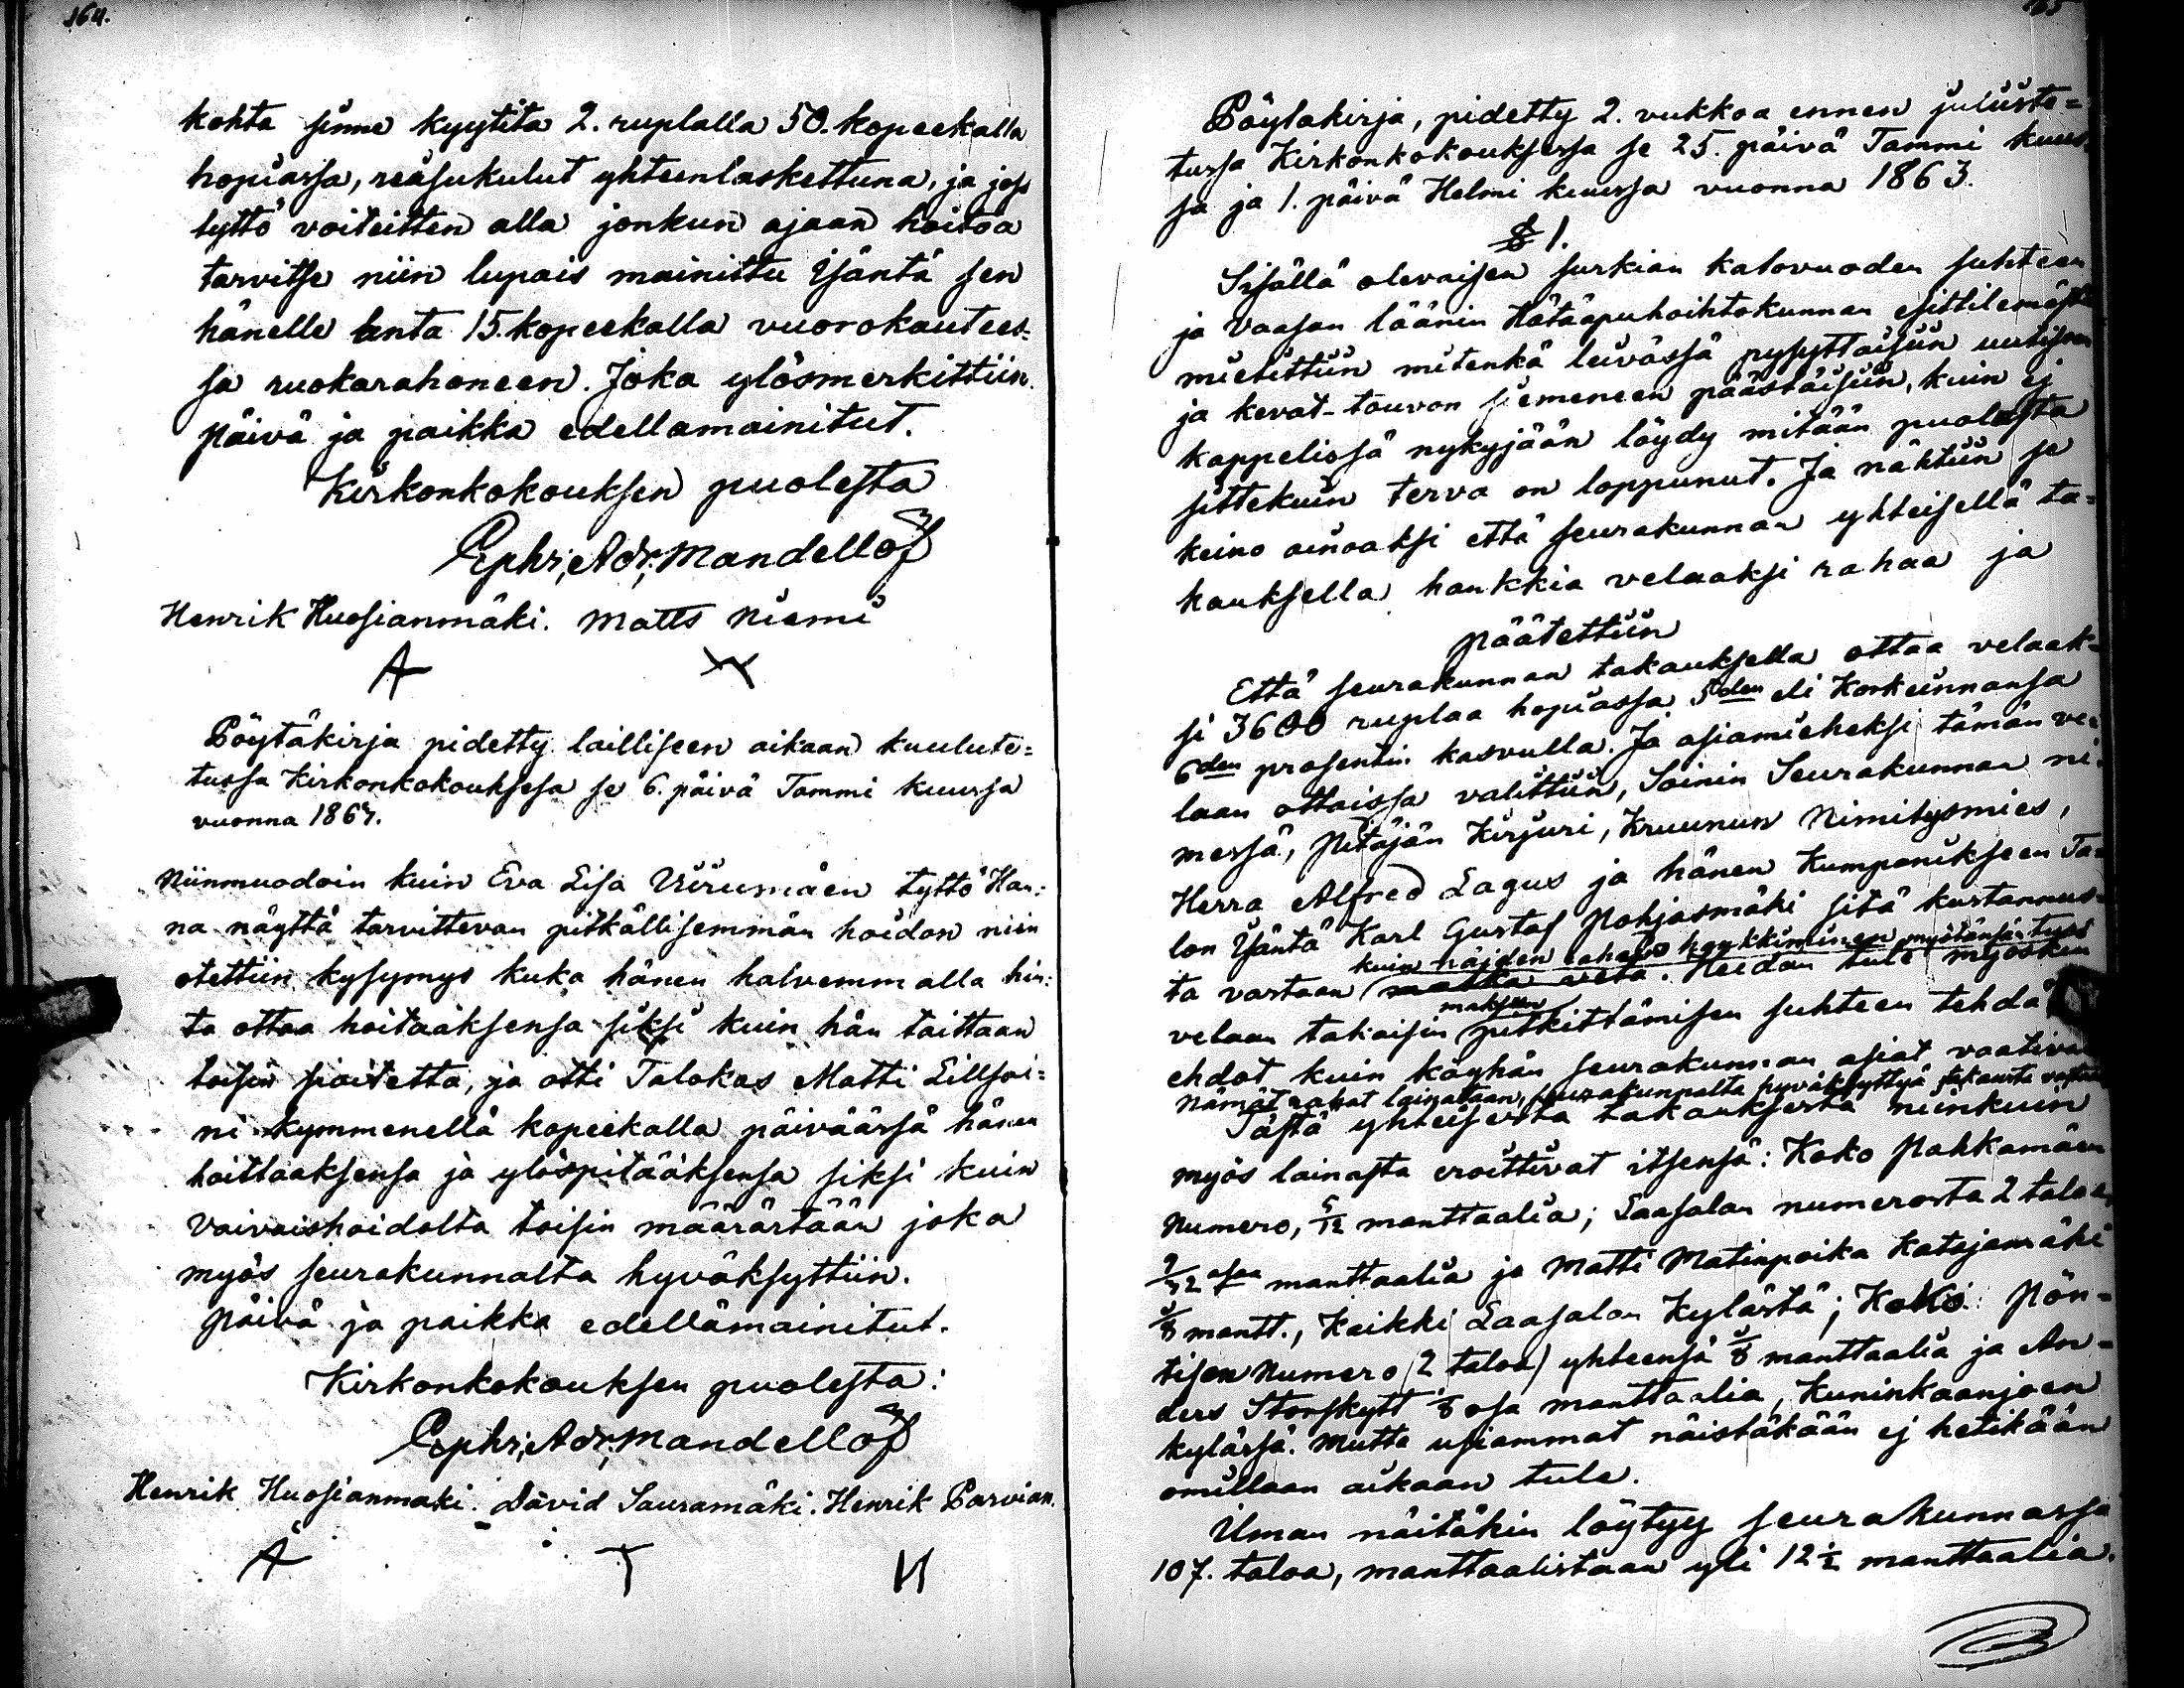 164.
kohta sinne kyytitä 2. ruplalla 50. kopeekalla
hopiassa, reäsukulut yhteenlaskettuna, ja jos
tyttö voiteitten alla jonkun ajaan hoitoa
tarvitse niin lupais mainittu Isäntä sen
hänelle anta 15. kopeekalla vuorokautees-
sa ruokarahaneen. Joka ylösmerkittiin.
päivä ja paikka edellämainitut.
Kirkonkokouksen puolesta
Ephr; Adr; Mandellöf
Henrik Huosianmäki. Matts Niemi
Pöytäkirja pidetty lailliseen aikaan kuulute=
tussa Kirkonkokouksessa se 6. päivä Tammi kuussa
vuonna 1863.
Niinmuodoin kuin Eva Lisa Viirumäen tyttö Han=
na näyttä tarvittevan pitkällisemmän hoidon niin
otettiin kysymys kuka hänen halvemmalla hin=
ta ottaa hoitaaksensa siksi kuin hän taittaan
toisin hoitetta, ja otti Talokas Matti Lillsoi=
ni kymmenellä kopeekalla päiväässä hänen
hoittaaksensa ja ylöspitääksensä siksi kuin
Vaivaishoidolta toisin määrärtään joka
myös seurakunnalta hyväksyttiin.
päivä ja paikka edellämainitut.
Kirkonkokouksen puolesta:
Ephr; Adr; Mandellöf
Henrik Huosianmäki. David Sauramäki. Henrik Parvian.
A T H
165
Pöytäkirja, pidetty 2. viikkoa ennen juliiste=
tussa Kirkonkokouksessa se 25. päivä Tammi kuus=
sa ja 1. päivä Helmi kuussa vuonna 1863.
§ 1.
Sisällä olevaisen surkian katovuoden suhteen
ja Vaasan läänin Hätäapuhoihtokunnan esittilemästä
mietittiin mitenkä leivässä pysyttäisiin uutiseen
ja kevät-touvon siemeneen päästäisiin, kuin ej
kappelissa nykyjään löydy mitään puolesta
sittekuin terva on loppunut. Ja nähtiin se
keino ainoaksi että seurakunnan yhteisellä ta=
kauksella hankkia velaaksi rahaa ja
päätettiin
Että seurakunnan takauksella ottaa velaak=
si 3600 ruplaa hopiassa 5den eli Korkeinnansa
6den prosentin kasvulla. Ja asiamieheksi tämän ve=
laan ottaissa valittiin, Soinin Seurakunnan ni=
messä, Pitäjän Kirjuri, Kruunun Nimitysmies,
Herra Alfred Lagus ja hänen Kumpanikseen Ta=
lon Isäntä Karl Gustaf Pohjasmäki sitä kustannus=
kuin näiden rahain hankkiminen myötänsä tuos
ta vastaan matka vetä. Heidän tule myöskin
maksun
velaan takaisin pitkittämisen suhteen tehdä
ehdot kuin köyhän seurakunnan asiat vaativat
Nämät rahat lainataan, seurakunnalta hyväksyttyä takausta vastaan
Tästä yhteisestä takauksesta niinkuin
myös lainasta eroittivat itsensä: Koko Pahkamäen
Numero, 5/12 manttaalia; Laasalan numerosta 2 taloa,
9/32 osaa manttaalia ja Matti Matinpoika Katajamäki
1/8 mantt., Kaikki Laasalan Kylästä; Koko Pön=
tisen Numero (2 taloa) yhteensä 1/8 manttaalia ja An=
ders Storskytt 1/8 osa manttaalia, Kuninkaanjoen
kylässä. Mutta usiammat näistäkään ej hetikään
omillaan aikaan tule.
Ilman näitäkin löytyy seurakunnassa
107. taloa, manttaalistaan yli 12 1/2 manttaalia.